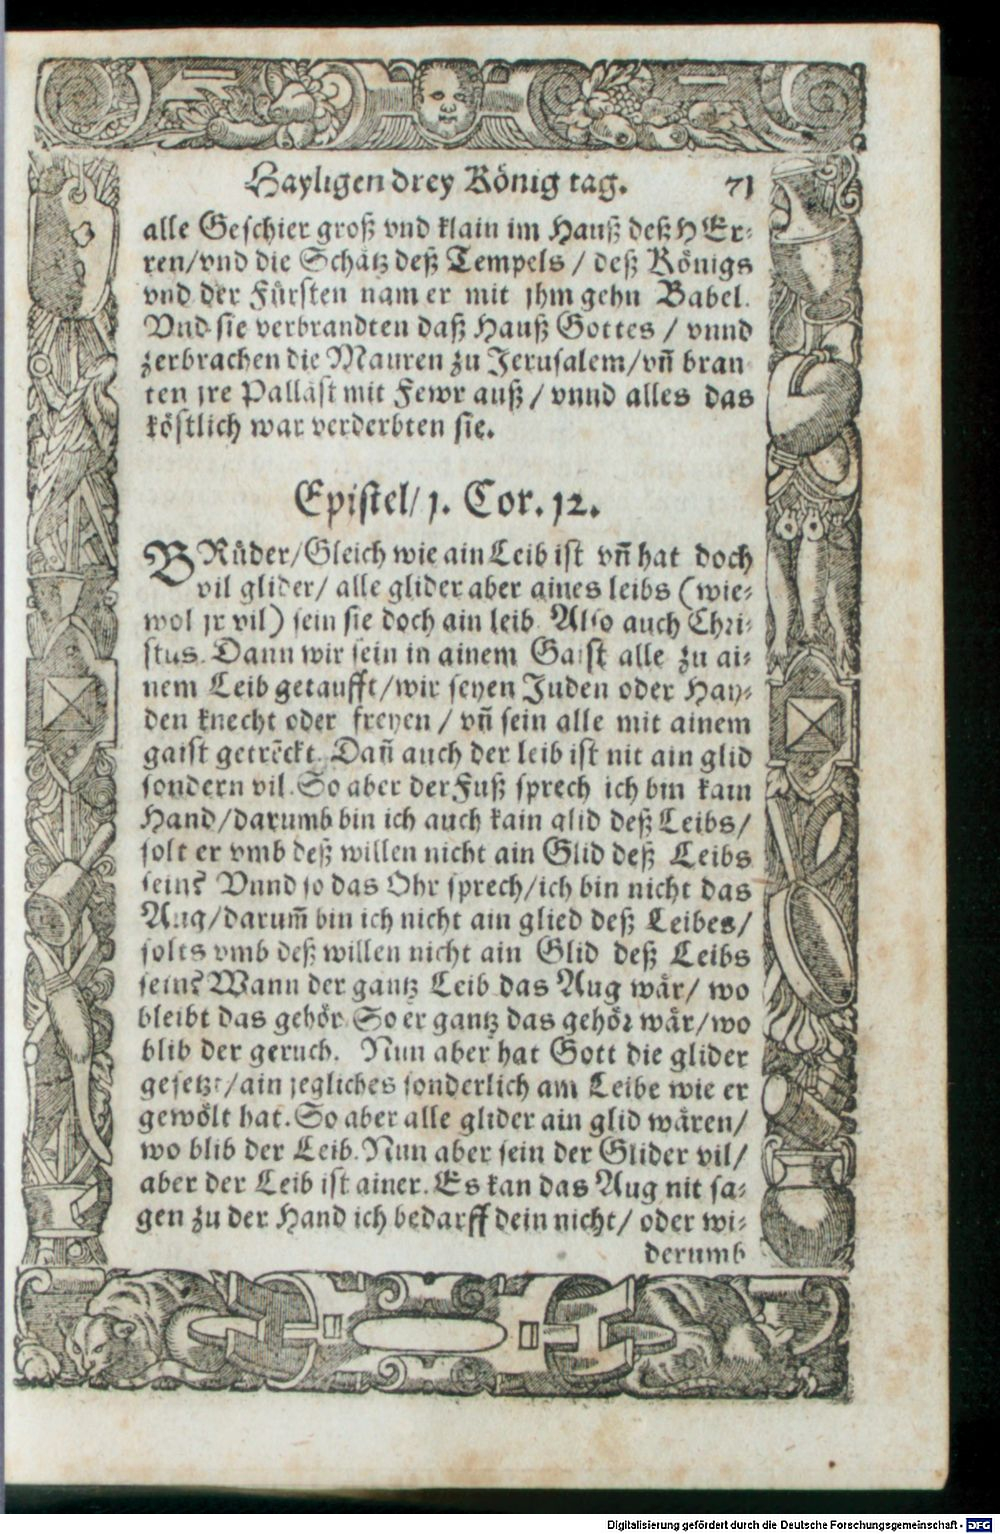 Hayligen drey König tag. 71
alle Geschier groß vnd klain im Hauß deß HEr⸗
ren/vnd die Schätz deß Tempels / deß Königs
vnd der Fürsten nam er mit jhm gehn Babel.
Vnd sie verbrandten daß Hauß Gottes / vnnd
zerbrachen die Mauren zu Jerusalem/vñ bran⸗
ten jre Palläst mit Fewr auß / vnnd alles das
köstlich war verderbten sie.
Epistel/ j. Cor. 12.
BRüder/Gleich wie ain Leib ist vñ hat doch
vil glider/ alle glider aber aines leibs (wie⸗
wol jr vil) sein sie doch ain leib. Also auch Chri⸗
stus. Dann wir sein in ainem Gaist alle zu ai⸗
nem Leib getaufft/wir seyen Juden oder Hay⸗
den knecht oder freyen / vñ sein alle mit ainem
gaist getrẽckt. Dañ auch der leib ist nit ain glid
sondern vil. So aber der Fuß sprech ich bin kain
Hand/darumb bin ich auch kain glid deß Leibs/
solt er vmb deß willen nicht ain Glid deß Leibs
sein? Vnnd so das Ohr sprech/ich bin nicht das
Aug/darum̃ bin ich nicht ain glied deß Leibes/
solts vmb deß willen nicht ain Glid deß Leibs
sein? Wann der gantz Leib das Aug wär/ wo
bleibt das gehör. So er gantz das gehör wär/wo
blib der geruch. Nun aber hat Gott die glider
gesetzt/ain jegliches sonderlich am Leibe wie er
gewölt hat. So aber alle glider ain glid wären/
wo blib der Leib. Nun aber sein der Glider vil/
aber der Leib ist ainer. Es kan das Aug nit sa⸗
gen zu der Hand ich bedarff dein nicht/ oder wi⸗
derumb
Digitalisierung gefördert durch die Deutsche Forschungsgemeinschaft - DFG